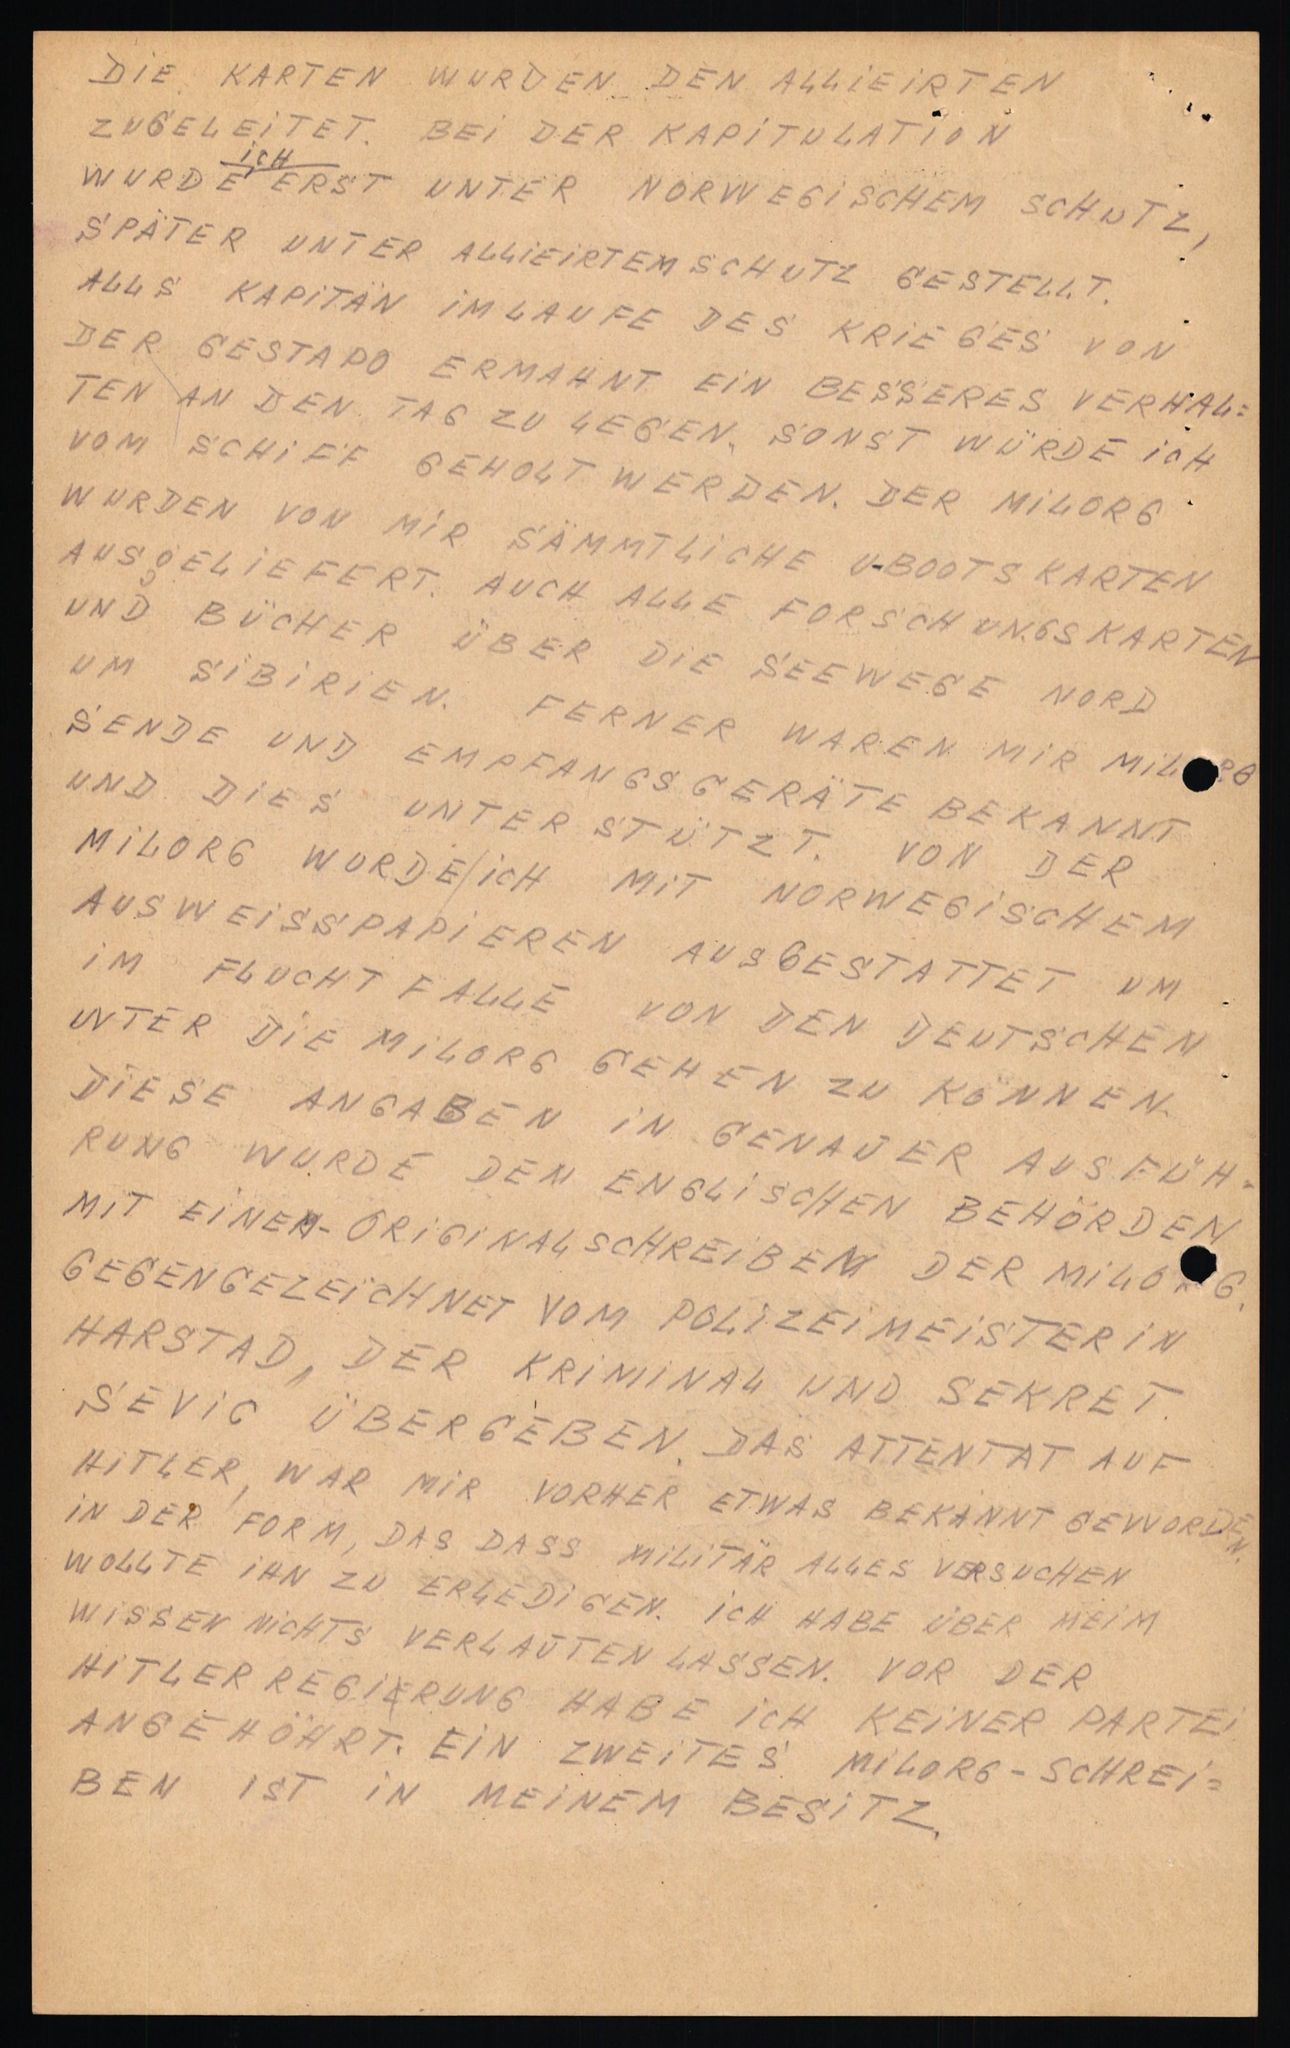 DIE KARTEN WURDEN DEN ALLIEIRTEN
ZUGELEITET. BEI DER KAPITULATION
WURDE ICH ERST UNTER NORWEGISCHEM SCHUTZ,
SPÄTER UNTER ALLIEIRTEM SCHUTZ GESTELLT.
ALLS KAPITÄN IM LAUFE DES KRIEGES VON
DER GESTAPO ERMAHNT EIN BESSERES VERHAL=
TEN AN DEN TAG ZU LEGEN, SONST WÜRDE ICH
VOM SCHIFF GEHOLT WERDEN. DER MILORG
WURDEN VON MIR SÄMMTLICHE U-BOOTSKARTEN
AUSGELIEFERT. AUCH ALLE FORSCHUNGSKARTEN
UND BÜCHER ÜBER DIE SEEWEGE NORD
UM SIBIRIEN. FERNER WAREN MIR MILORG
SENDE UND EMPFANGSGERÄTE BEKANNT
UND DIES UNTERSTÜTZT. VON DER
MILORG WURDE/ICH MIT NORWEGISCHEM
AUSWEISSPAPIEREN AUSGESTATTET UM
IM FLUCHTFALLE VON DEN DEUTSCHEN
UNTER DIE MILORG GEHEN ZU KÖNNEN.
DIESE ANGABEN IN GENAUER AUSFÜH=
RUNG WURDE DEN ENGLISCHEN BEHÖRDEN
MIT EINEM-ORIGINALSCHREIBEN DER MILORG.
GEGENGEZEICHNET VOM POLIZEIMEISTER IN
HARSTAD, DER KRIMINAL UND SEKRET.
SEVIG ÜBERGEBEN. DAS ATTENTAT AUF
HITLER, WAR MIR VORHER ETWAS BEKANNT GEWORDEN.
IN DER FORM, DAS DASS MILITÄR ALLES VERSUCHEN
WOLLTE IHN ZU ERLEDIGEN. ICH HABE ÜBER MEIM
WISSEN NICHTS VERLAUTEN LASSEN. VOR DER
HITLERREGIERUNG HABE ICH KEINER PARTEI
ANGEHÖHRT. EIN ZWEITES MILORG-SCHREI=
BEN IST IN MEINEM BESITZ.